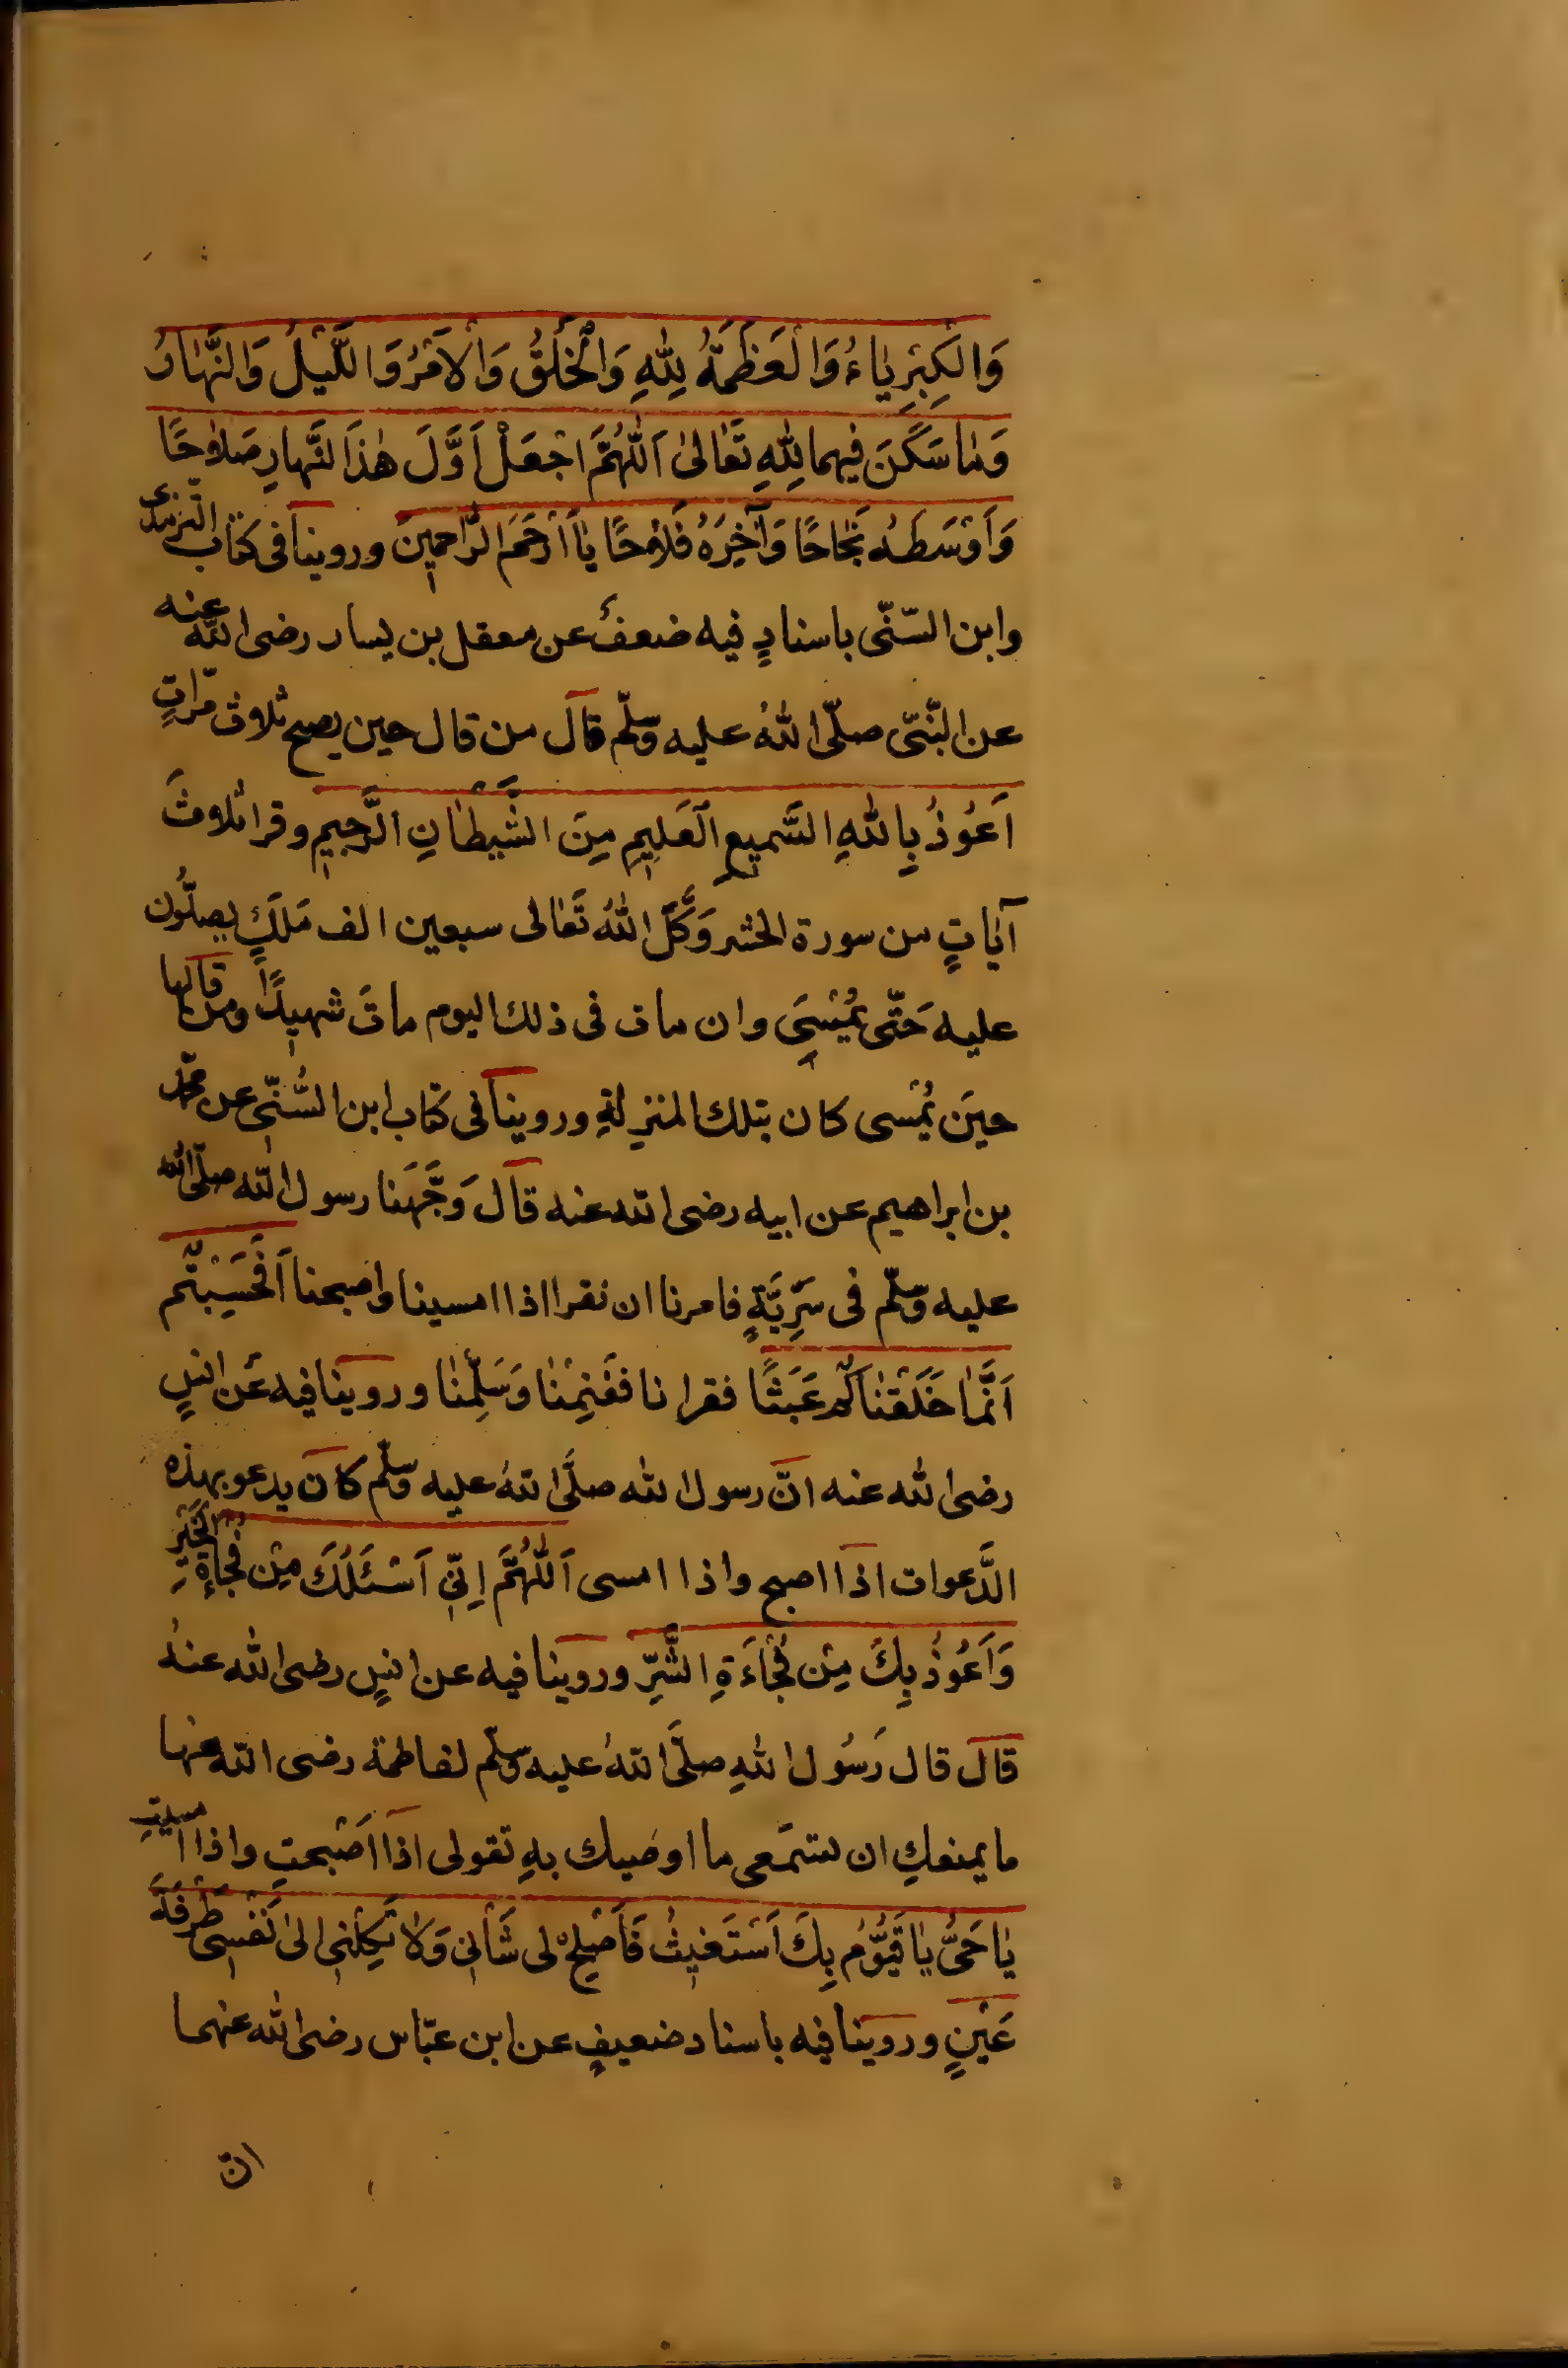 وَالْكِبْرِيَاءُ وَالْعَظَمَةُ لِلّٰهِ وَالْخَلْقُ وَالْاَمْرُ وَاللَّيْلُ وَالنَّهَارُ
وَمَا سَكَنَ فِيهِمَا لِلّٰهِ تَعَالٰى اَللّٰهُمَّ اجْعَلْ اَوَّلَ هٰذَا لنَّهَارِ صَلَاحًا
وَاَوْسَطَهُ نَجَاحًا وَآخِرَهُ فَلَاحًا يَا اَرْحَمَ الرَّاحِمِينَ وروينا فى كتاب الترمذى
وابن السّنّى باسنادٍ فيه ضعفٌ عن معقل بن يسار رضى الله عنه
عن النّبىّ صلّى اللهُ عليه وسلّم قال من قال حين يصبح ثلاث مرّاتٍ
اَعُوذُ بِاللهِ السَّمِيعِ الْعَلِيمِ مِنَ الشَّيْطَانِ الرَّجِيمِ وقرا ثلاثَ
آيَاتٍ من سورة الحشر وَكَّلَ اللهُ تَعَالى سبعين الف مَلَكٍ يصلُّون
عليه حَتّٰى يُمْسِىَ وان مات فى ذلك اليوم ماتَ شهيدًا ومن قالها
حينَ يُمْسى كان بتلك المنزلةِ وروينا فى كتاب ابن السُّنّى عن محمّد
بن ابراهيم عن ابيه رضى الله عنه قال وَجَّهَنا رسول الله صلّى الله
عليه وسلّم فى سَرِيَّةٍ فامرنا ان نقرا اذا امسينا واصبحنا اَفَحَسِبْتُمْ
اَنَّمَا خَلَقْنَاكُمْ عَبَثًا فقرانا فغَنِمْنَا وَسَلِمْنَا وروينا فيه عَن انسٍ
رضى الله عنه انّ رسول الله صلَّى اللهُ عليه وسلّم كان يدعو بهذه
الدَّعوات اذا اصبح واذا امسى اَللّٰهُمَّ اِنِّى اَسْئَلُكَ مِنْ فُجَاءَةِ الْخَيْرِ
وَاَعُوذُ بِكَ مِنْ فُجَاءَةِ الشَّرِّ وروينا فيه عن انسٍ رضى الله عنهُ
قالَ قال رَسُول اللهِ صلَّى اللهُ عليه وسلّم لفاطمة رضى الله عنها
ما يمنعكِ ان تستمعى ما اوصيك بهِ تقولى اذا اَصْبحتِ واذا امسيتِ
يَا حَىُّ يَا قَيُّوْمُ بِكَ اَسْتَغِيثُ فَاَصْلِحْ لى شَأْنِى وَلَا تَكِلْنِى اِلٰى نَفْسِى طَرْفَةَ
عَيْنٍ وروينا فيه باسناد ضعيفٍ عن ابن عبّاس رضى الله عنهما
ان